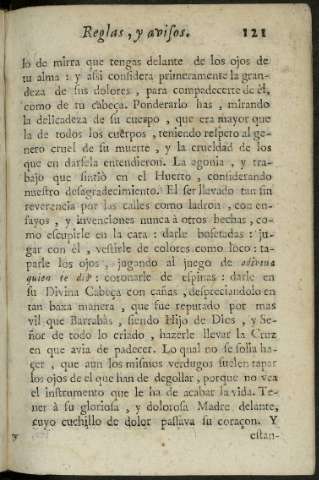 Reglas, y avisos. 121
lo de mirra que tengas delante de los ojos de
tu alma: y assi considera primeramente la gran-
deza de sus dolores, para compadecerte de él,
como de tu cabeça. Ponderarlo has, mirando
la delicadeza de su cuerpo, que era mayor que
la de todos los cuerpos, teniendo respeto al ge-
nero cruel de su muerte, y la crueldad de los
que en darsela entendieron. La agonia, y tra-
bajo que sintiò en el Huerto, considerando
nuestro desagradecimiento. El ser llevado tan sin
reverencia por las calles como ladron, con en-
sayos, y invenciones nunca à otros hechas, co-
mo escupirle en la cara: darle bofetadas: ju-
gar con èl, vestirle de colores como loco: ta-
parle los ojos, jugando al juego de adivina
quien te diò: coronarle de espinas: darle en
su Divina Cabeça con cañas, despreciandolo en
tan baxa manera, que fue reputado por mas
vil que Barrabàs, siendo Hijo de Dios, y Se-
ñor de todo lo criado, hazerle llevar la Cruz
en que avia de padecer. Lo qual no se solia ha-
çer, que aun los mismos verdugos suelen tapar
los ojos de el que han de degollar, porque no vea
el instrumento que le ha de acabar la vida. Te-
ner à su gloriosa, y dolorosa Madre delante,
cuyo cuchillo de dolor passava su coraçon. Y
estan-